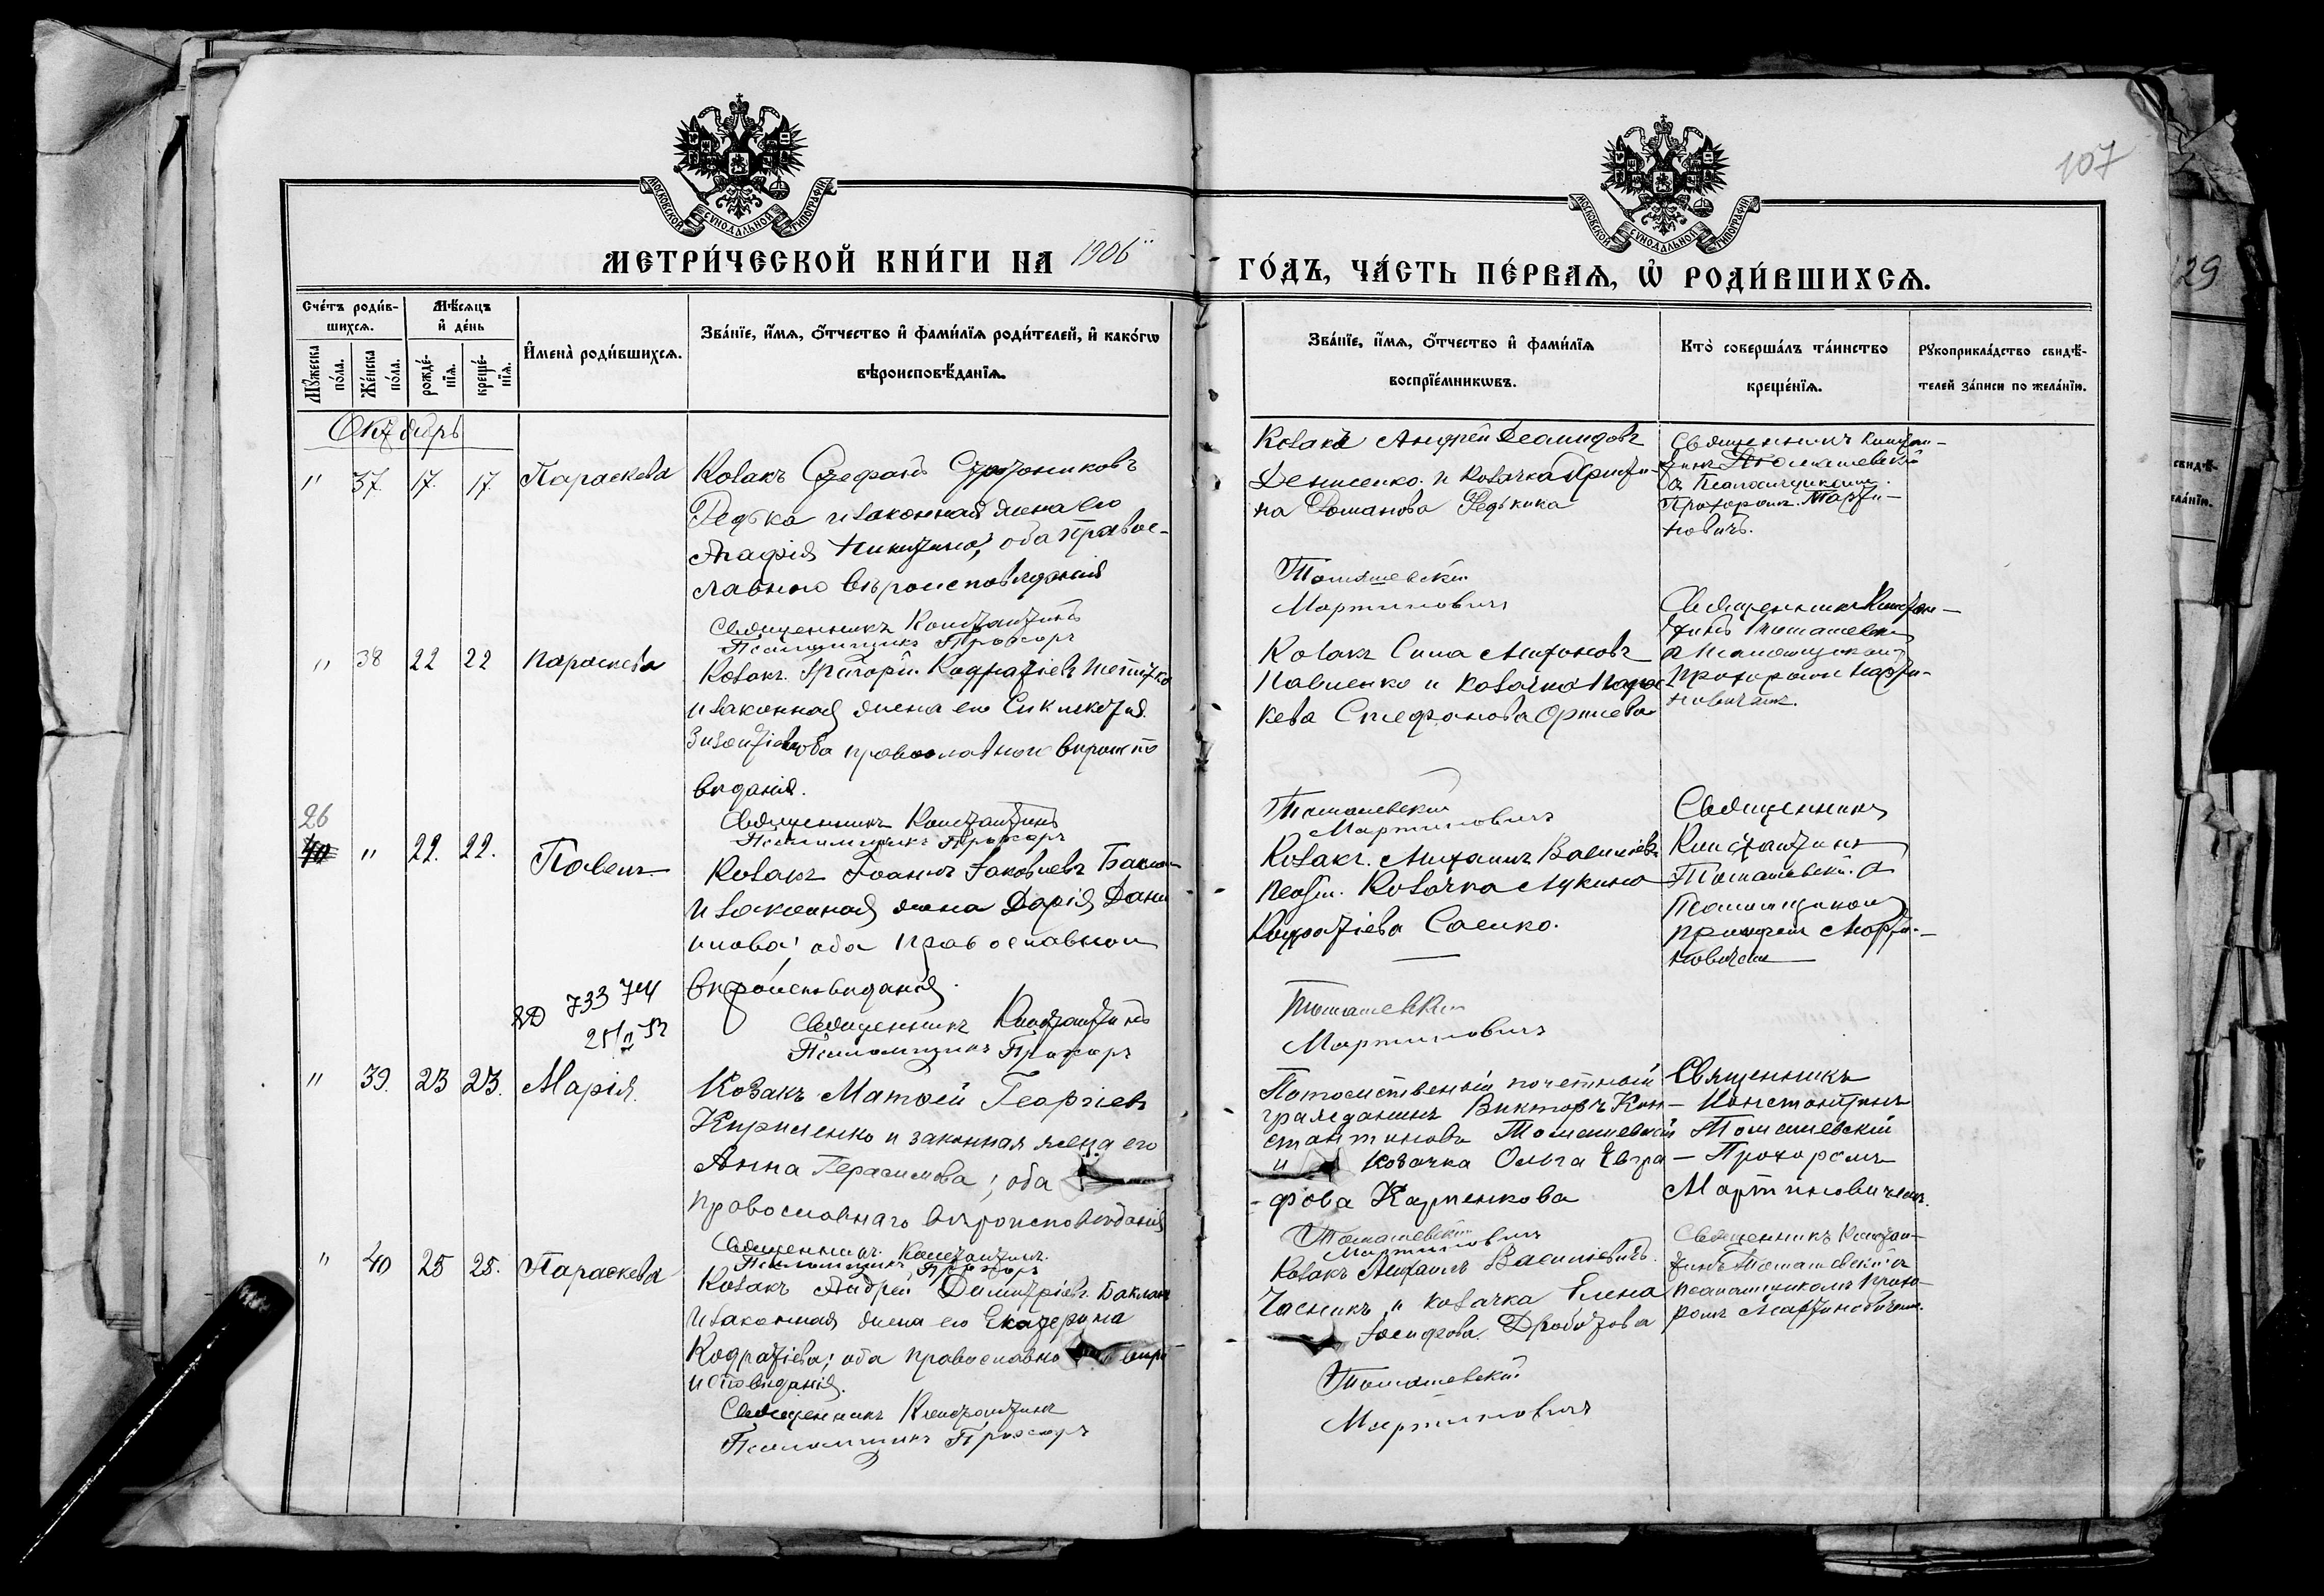 107
МОСКОВСКОЙ СУНОДАЛЬНОЙ ТИПОГРАФІИ
МОСКОВСКОЙ СУНОДАЛЬНОЙ ТИПОГРАФІИ
МЕТРИ́ЧЕСКОЙ КНИ́ГИ НА 1906
ГО́ДЪ, ЧА́СТЬ ПЕ́РВАѦ, Ѡ҆ РОДИ́ВШИХСѦ.
Сче́тъ роди́в-
шихсѧ.
Мꙋ́жеска по́ла.
Же́нска по́ла.
Мѣ́сѧцъ
и҆ де́нь
рожде́-
нїѧ.
креще́-
нїѧ.
И҆мена̀ роди́вшихсѧ.
Зва́нїе, и҆́мѧ, ѻ҆́тчество и҆ фами́лїѧ роди́телей, и҆ како́гѡ
вѣроисповѣ́данїѧ.
Зва́нїе, и҆́мѧ, ѻ҆́тчество и҆ фами́лїѧ
воспрїе́мникѡвъ.
Кто̀ соверша́лъ та́инство
креще́нїѧ.
Рꙋкоприкла́дство свидѣ́-
телей за́писи по жела́нїю.
Октябрь
" 37 17. 17. Параскева
Козакъ Стефанъ
Редька и законная жена его
Агафія Никитина; оба право-
славнаго вѣроисповѣданія
Священникъ Константинъ
Псаломщикъ Прохоръ
Козакъ Андрей Демидовъ
Денисенко и козачка Христи-
на Романова Редькина
Томашевскій
Мартиновичъ
Священникъ Констан-
тинъ Томашевскій
съ Псаломщикомъ
Прохоромъ Марти-
новичъ.
" 38 22 22 Параскева
Козакъ Григорій Кодратіевъ
и законная жена его
православнаго вѣроиспо
вѣданія.
Священникъ Константинъ
Псаломщикъ Прохоръ
Козакъ Сила
Павленко и козачка Парас
кева Стефанова
Томашевскій
Мартиновичъ
Священникъ Констан-
тинъ Томашевскій
съ Псаломщикомъ
Прохоромъ Марти-
новичемъ.
26
40 " 22. 22. Павелъ
Козакъ Іоаннъ Іаковлевъ Баклан
и законная жена Дарія Дани
лова; оба православнаго
вѣроисповѣданія.
Священникъ Константинъ
Псаломщикъ Прохоръ
733 744
25/II 52
Козакъ Михаилъ Василіевъ
Козачка Лукина
Кодратіева Саенко.
Томашевскій
Мартиновичъ
Священникъ
Константинъ
Томашевскій съ
Псаломщикомъ
Прохоромъ Марти-
новичемъ
" 39. 23 23. Марія.
Козакъ Матѳей Георгіевъ
Кириленко и законная жена его
Анна Герасимова; оба
православнаго вѣроисповѣданія
Священникъ Константинъ
Псаломщикъ Прохоръ
Потомственный почетный
гражданинъ Викторъ Кон-
стантиновъ Томашевскій
и козачка Ольга Евгра-
фова Карпенкова
Томашевскій
Мартиновичъ
Священникъ
Константинъ
Томашевскій
Прохоромъ
Мартиновичемъ.
" 40 25 25. Параскева
Козакъ Андрей Димитріевъ Баклан
и законная жена его Екатерина
Кодратіева; оба православнаго вѣро
исповѣданія.
Священникъ Константинъ
Псаломщикъ Прохоръ
Козакъ Михаилъ Василіевичъ
Часникъ и козачка Елена
Іосифова
Томашевскій
Мартиновичъ
Священникъ Констан-
тинъ Томашевскій съ
псаломщикомъ Прохо-
ромъ Мартиновичемъ.
29